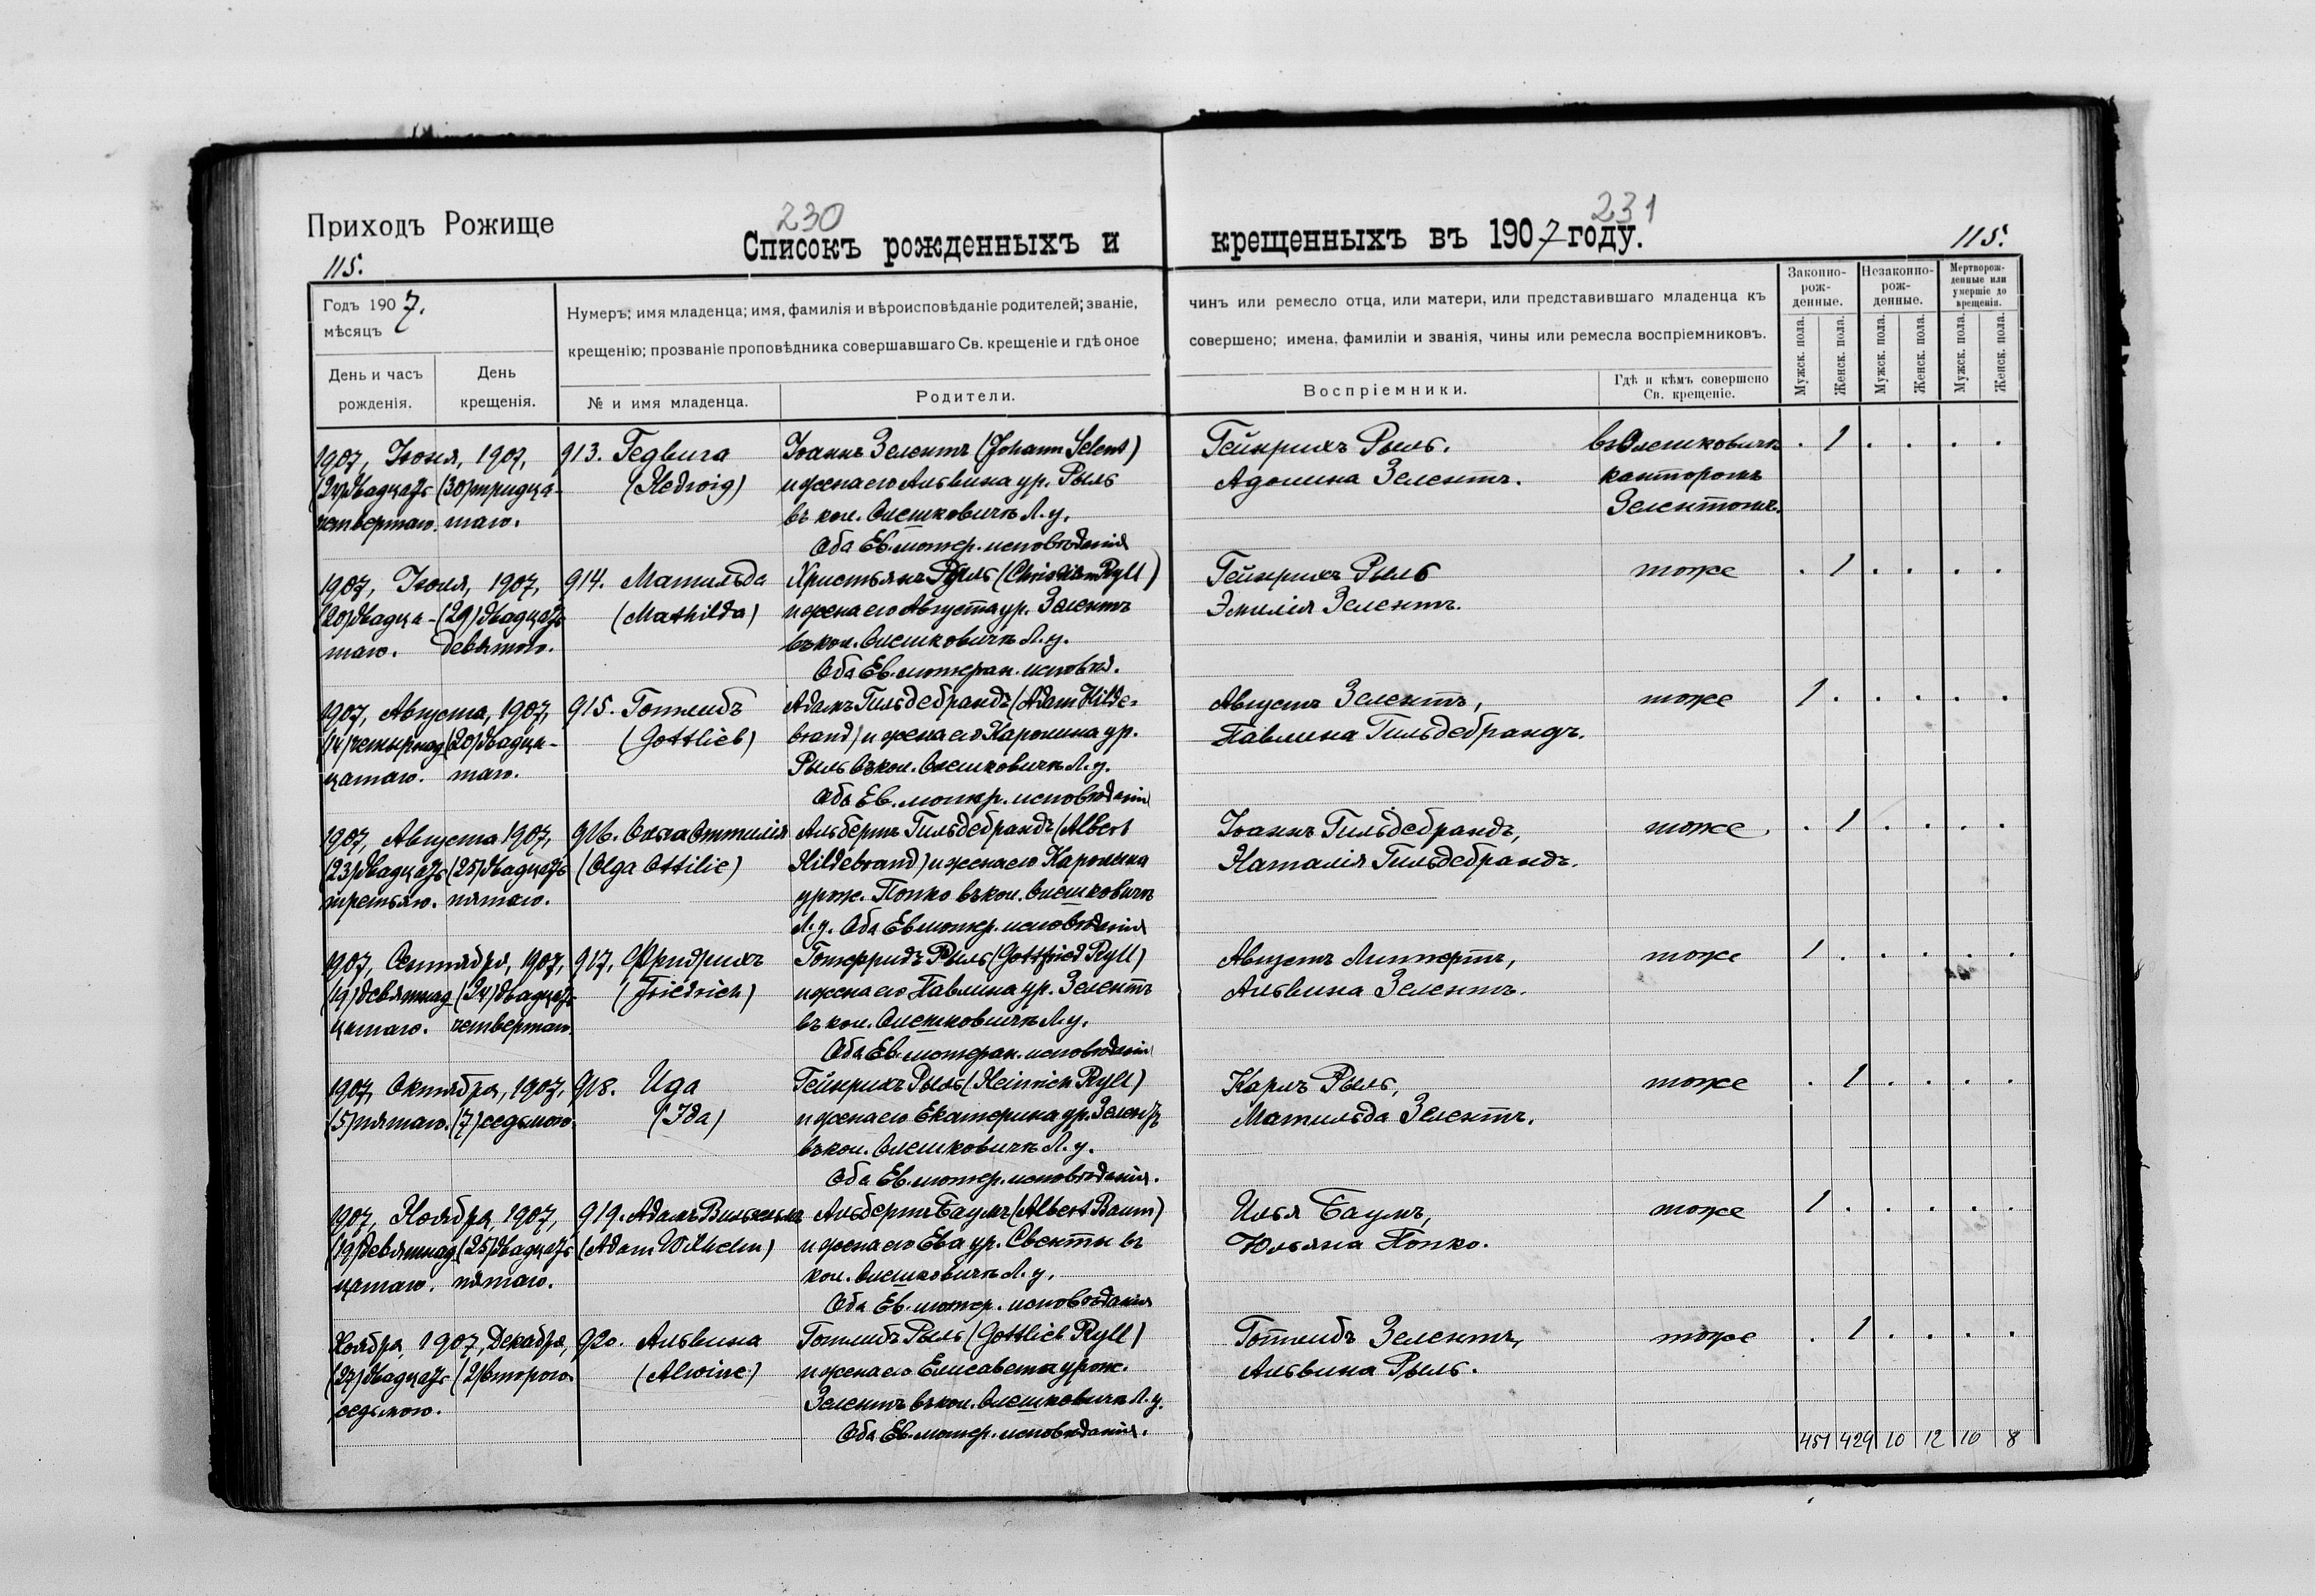 230
231
Приходъ Рожище
Списокъ рожденныхъ и крещенныхъ въ 1907 году.
115.
115.
Годъ 1907.
мѣсяцъ
День и часъ рожденія.
День крещенія.
Нумеръ; имя младенца; имя, фамилія и вѣроисповѣданіе родителей; званіе,
крещенію; прозваніе проповѣдника совершавшаго Св. крещеніе и гдѣ оное
№ и имя младенца.
Родители.
чинъ или ремесло отца, или матери, или представившаго младенца къ
совершено; имена, фамиліи и званія, чины или ремесла воспріемниковъ.
Воспріемники.
Гдѣ и кѣмъ совершено
Св. крещеніе.
Законно-
рож-
денные.
Незаконно-
рож-
денные.
Мертворож-
денные или
умершіе до
крещенія.
Мужск. пола.
Женск. пола.
Мужск. пола.
Женск. пола.
Мужск. пола.
Женск. пола.
1907, Іюня, 1907, 913. Гедвига Іоаннъ Зелентъ (Johann Selent) Гейнрихъ Рыль. въ Олешковичѣ . 1 . . . .
(24) двадцать (30) тридца- (Hedwig) и жена его Альвина ур. Рыль Адолина Зелентъ. канторомъ
четвертаго. таго. въ кол. Олешковичѣ Л. у. Зелентомъ.
Оба Ев. лютер. исповѣданія
1907, Іюля, 1907, 914. Матильда Христьянъ Рыль (Christian Ryll) Гейнрихъ Рыль тоже . 1 . . . .
(20) двадца- (29) двадцать (Mathilda) и жена его Августа ур. Зелентъ Эмилія Зелентъ.
таго. девятого. въ кол. Олешковичѣ Л. у.
Оба Ев. лютеран. исповѣд.
1907, Августа, 1907, 915. Готлибъ Адамъ Гильдебрандъ (Adam Hilde- Августъ Зелентъ, тоже 1 . . . . .
(14) четырнад (20) двадца- (Gottlieb) brand) и жена его Каролина ур. Павлина Гильдебрандъ.
цатаго. таго. Рыль въ кол. Олешковичѣ Л. у.
Оба Ев. лютер. исповѣданія
1907, Августа 1907, 916. Ольга Оттилія Альбертъ Гильдебрандъ (Albert Іоаннъ Гильдебрандъ, тоже . 1 . . . .
(23) двадцать (25) двадцать (Olga Ottilie) Hildebrand) и жена его Каролина Наталія Гильдебрандъ.
третьяго. пятаго. урож. Попко въ кол. Олешковичѣ
Л. у. Оба Ев лютер. исповѣданія
1907, Сентября, 1907, 917. Фридрихъ Готфридъ Рыль (Gottfried Ryll) Августъ Липпертъ, тоже 1 . . . . .
(19) девятнад (24) двадцать (Friedrich) и жена его Павлина ур. Зелентъ Альвина Зелентъ.
цатаго. четвертаго. въ кол. Олешковичѣ Л. у.
Оба Ев. лютеран. исповѣданія
1907, Октября, 1907, 918. Ида Гейнрихъ Рыль (Heinrich Ryll) Карлъ Рыль, тоже . 1 . . . .
(5) пятаго. (7) седьмого. (Ida) и жена его Екатерина ур. Зелентъ Матильда Зелентъ.
въ кол. Олешковичѣ Л. у.
Оба Ев. лютер. исповѣданія.
1907, Ноября, 1907, 919. Адамъ Вильгельмъ Альбертъ Баумъ (Albert Baum) Илья Баумъ, тоже 1 . . . . .
(19) девятнад (25) двадцать (Adam Wilhelm) и жена его Ева ур. Свенты въ Юльяна Попко.
цатаго. пятаго. кол. Олешковичѣ Л. у.
Оба Ев. лютер. исповѣданія
Ноября, 1907, Декабря, 920. Альвина Готлибъ Рыль (Gottlieb Ryll) Готлибъ Зелентъ, тоже . 1 . . . .
(27) двадцать (2) второго. (Alwine) и жена его Елисавета урож. Альвина Рыль.
седьмого. Зелентъ въ кол. Олешковичѣ Л. у.
Оба Ев. лютер. исповѣданія.
451 429 10 12 10 8